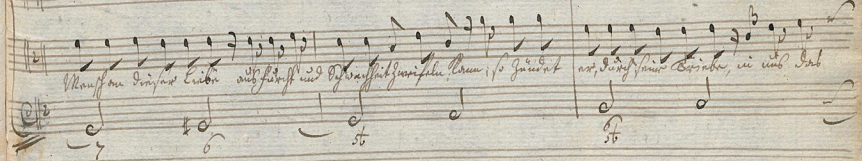 Mensch an dieser Liebe aus Furcht und Schwachheit zweifeln kann; so zündet er, durch seine Triebe, in uns das
7 6 5t 6 5t